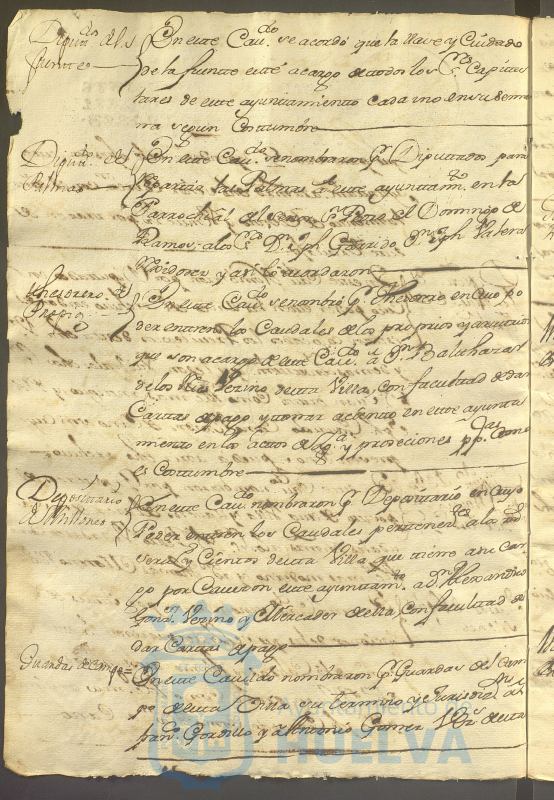 Diput.dos de la
fuente
En este Cav.do se acordó que la llave y Cuidado
de la fuente esté acargo de todos los S.res Capitu
lares de este ayuntamiento cada uno en su sema
na segun Costumbre
Diput.dos de
Palmas
En este Cav.do se nombraron p.r Diputados para
Repartir las Palmas a este ayuntam.to en la
Parrochial del Señor S.n Pedro el Domingo de
Ramos, a los S.res D.n Joseph Garrido D.n Joseph Valera
Rexidores y así lo acordaron
Thesorero de
Propios
En este Cav.do se nombró p.r Thesorero en cuio po
der entren los Caudales de los propios y arvitrios
que son acargo de este Cav.do a D.n Balthazar
de los Rios Vezino de esta Villa, con facultad de dar
Cartas de pago y tomar aciento en este ayunta
miento en los actos de y proseciones pp.cas como
es Costumbre
Depositario
En este Cav.do nombraron p.r Depositario en cuyo
Poder entren los Caudales pertenec.tes a la
y Cientos de esta Villa que tiene a su car
go por Caveson este ayuntam.to a D.n
Gonz.s Vezino y Mercader de ella con facultad de
dar Cartas de pago
Guardas de Campo
En este Cavildo nombraron p.r Guardas del Cam
po de esta Villa su termino y Jurisdiz.on a
Fran.co Gordillo y a Antonio Gomez Vez.s de esta
Ayuntamiento de
HUELVA